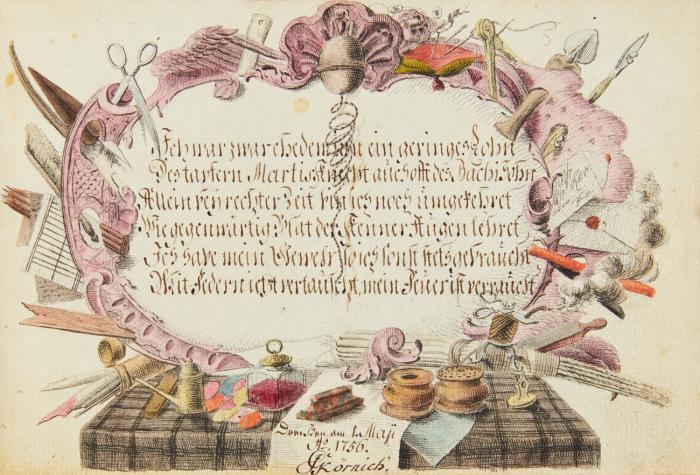 Ich war zwar ehedem um ein geringes Lohn
Des tapfern Martis Knecht auch oft des Bachi Sohn
Allein bey rechter Zeit bin ich noch umgekehret
Wie gegenwärtig Blat der Kenner Augen lehret
Ich habe mein Gewehr so ich sonst stets gebraucht
Mit Federn ietzt vertauscht, mein Feuer ist verraucht
Dressden, am 1. Maji
Ao. 1756.
Körnich.